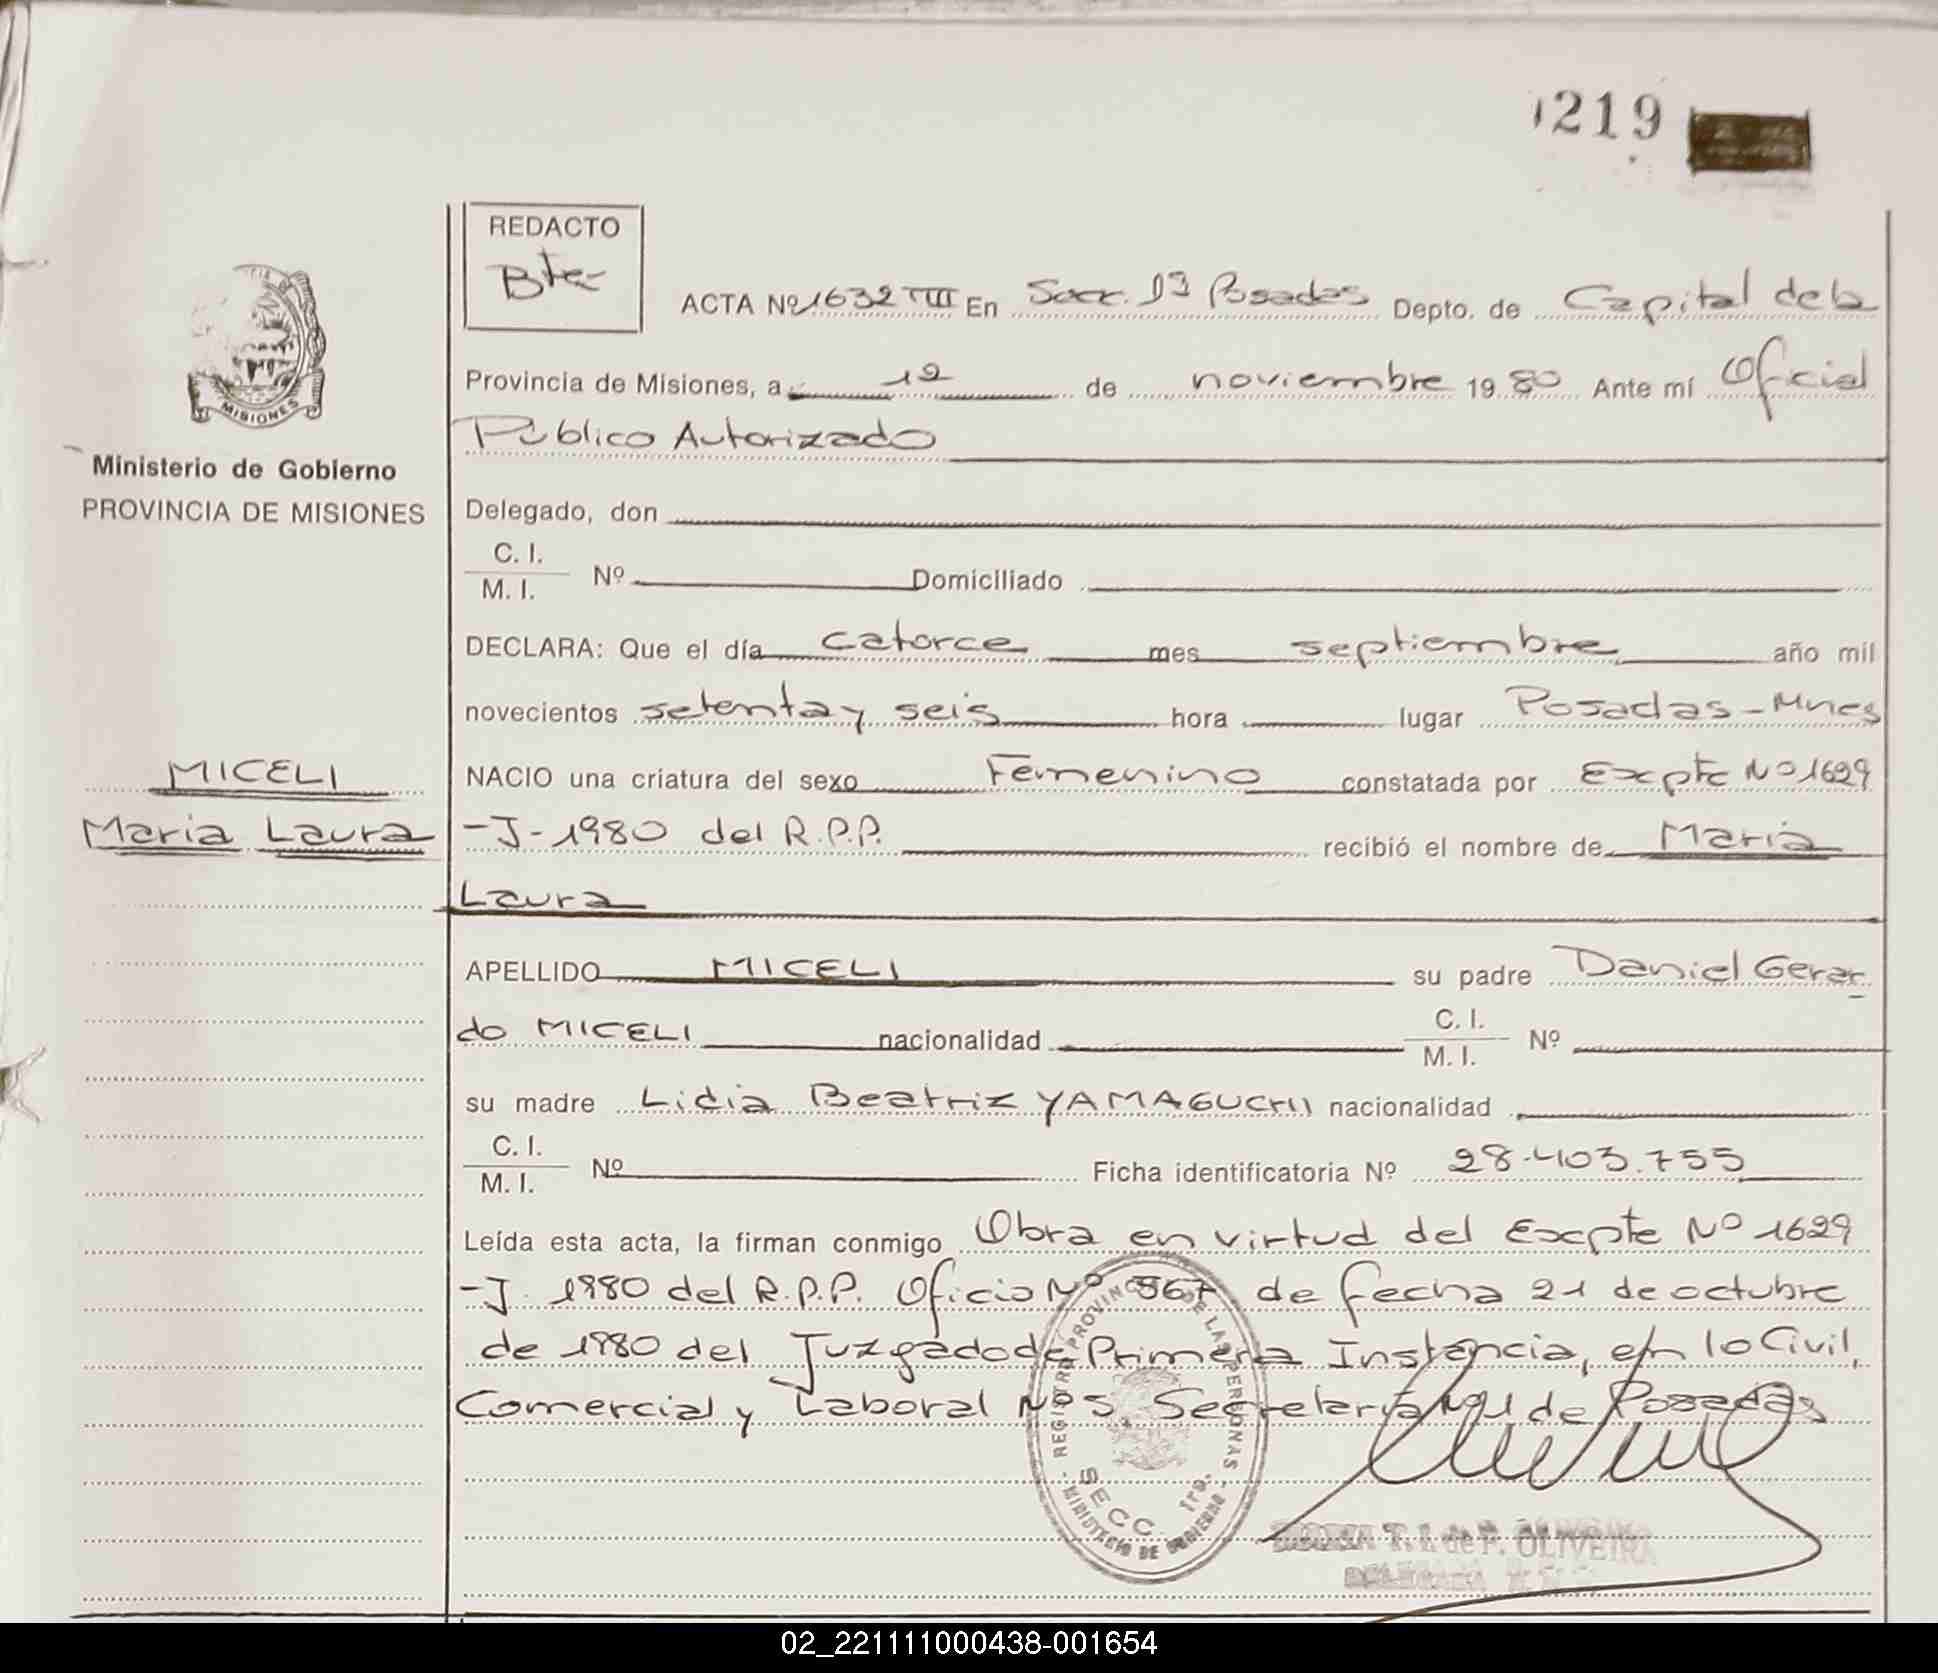 1219
REDACTO
Bter
ACTA Nº 1632 TIII En Secc. 1ª Posadas Depto. de Capital de la
Provincia de Misiones, a 12 de noviembre 1980 Ante mí Oficial
Público Autorizado
MISIONES
Ministerio de Gobierno
PROVINCIA DE MISIONES
Delegado, don
C. I.
M. I. Nº Domiciliado
DECLARA: Que el día catorce mes septiembre año mil
novecientos setenta y seis hora lugar Posadas - Mnes
MICELI
Maria Laura
NACIO una criatura del sexo Femenino constatada por Expte Nº 1629
-J- 1980 del R.P.P. recibió el nombre de Maria
Laura
APELLIDO MICELI su padre Daniel Gerar
do MICELI nacionalidad C. I. M. I. Nº
su madre Lidia Beatriz YAMAGUCHI nacionalidad
C. I.
M. I. Nº Ficha identificatoria Nº 28.403.755
Leída esta acta, la firman conmigo Obra en virtud del Expte Nº 1629
-J- 1980 del R.P.P. Oficio Nº 567 de fecha 21 de octubre
de 1980 del Juzgado de Primera Instancia, en lo Civil,
Comercial y Laboral Nº 5, Secretaria Nº 1 de Posadas
REGISTRO PROVINCIAL DE LAS PERSONAS
SECC. 1ra.
MINISTERIO DE GOBIERNO
T. I. de F. OLIVEIRA
DELEGADA
02_221111000438-001654